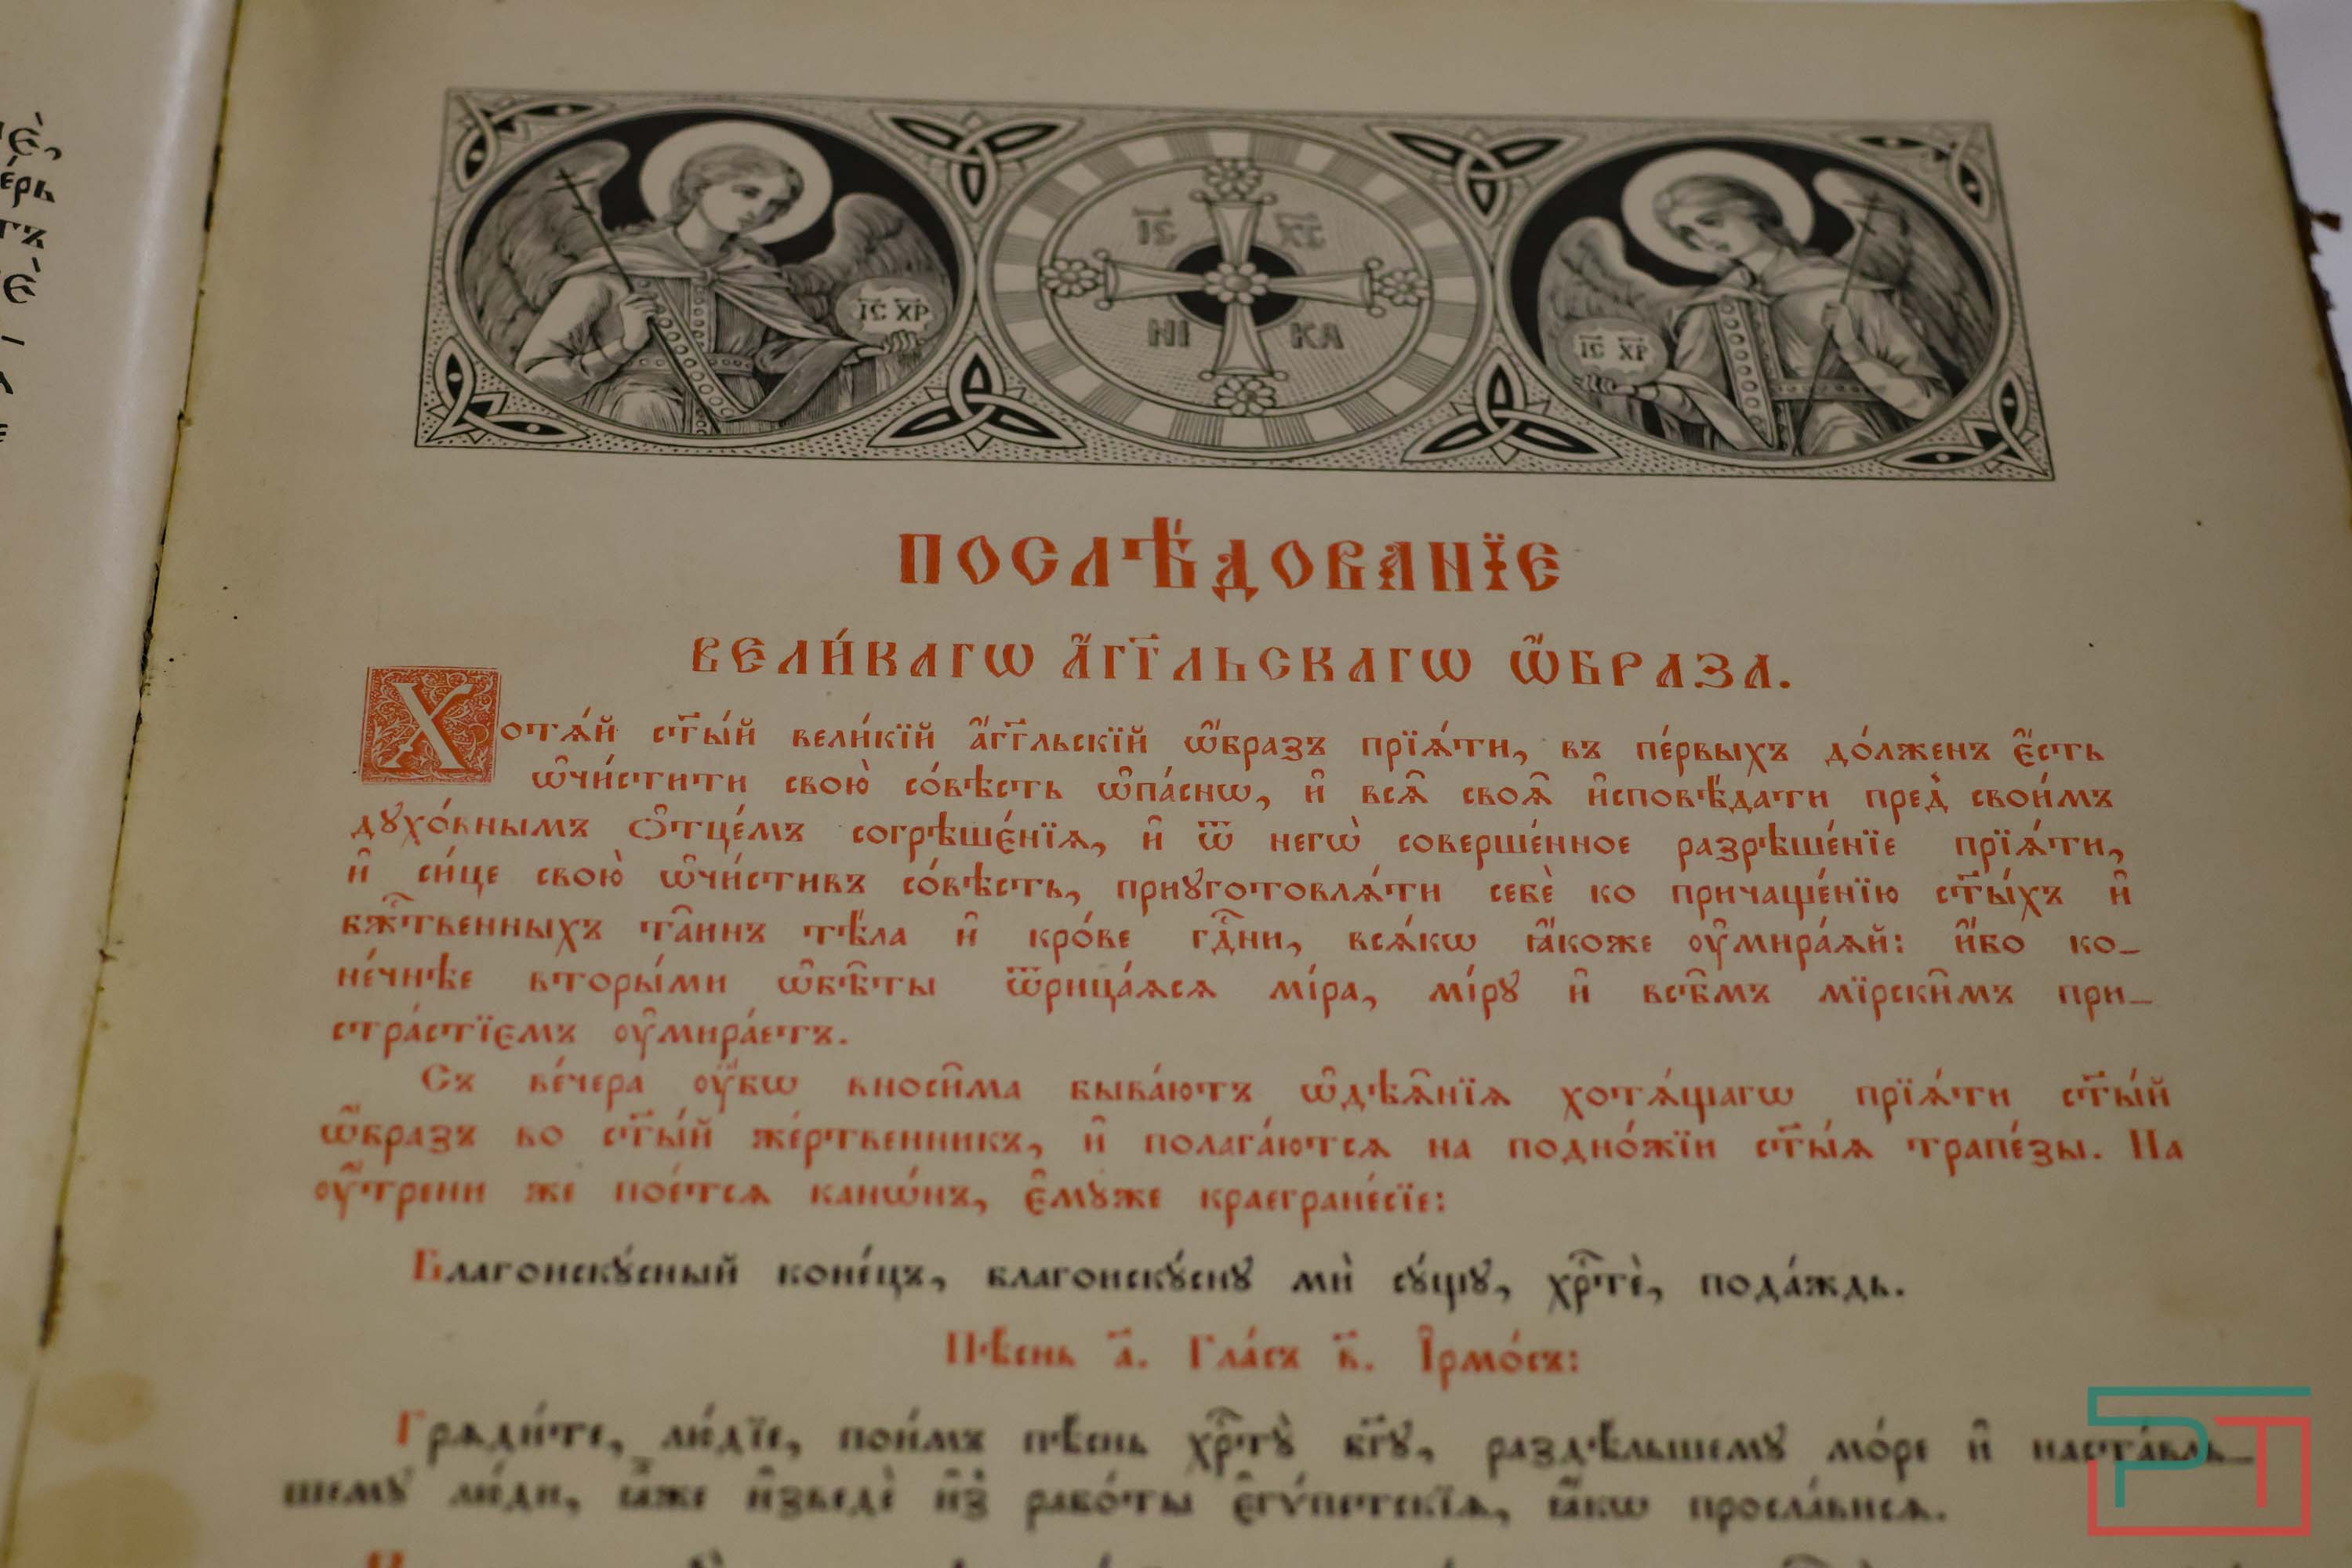 І҃С Х҃С
НІ КА
І҃С ХР
І҃С ХР
ПОСЛѢ́ДОВАНЇЕ
ВЕЛИ́КАГѠ А҆́Г҃ГЛЬСКАГѠ Ѡ҆́БРАЗА.
Хотѧ́й ст҃ы́й вели́кїй а҆́г҃гльскїй ѡ҆́бразъ прїѧ́ти, въ пе́рвыхъ до́лженъ є҆́сть
ѡ҆чи́стити свою̀ со́вѣсть ѡ҆па́снѡ, и҆ всѧ̑ своѧ̑ и҆сповѣ́дати пред̾ свои́мъ
дꙋхо́внымъ ѻ҆тце́мъ согрѣшє́нїѧ, и҆ ѿ негѡ̀ соверше́нное разрѣше́нїе прїѧ́ти,
и҆ си́це свою̀ ѡ҆чи́стивъ со́вѣсть, приꙋготовлѧ́ти себѐ ко причаще́нїю ст҃ы́хъ и҆
бж҃твенныхъ та̑инъ тѣ́ла и҆ кро́ве гд҇ни, всѧ́кѡ ꙗ҆́коже ᲂу҆мира́ѧй: и҆́бо ко-
не́чнѣе вторы́ми ѡ҆бѣ̑ты ѿрица́ѧсѧ мі́ра, мі́рꙋ и҆ всѣ̑мъ мїрски̑мъ при-
стра́стїємъ ᲂу҆мира́етъ.
Съ ве́чера ᲂу҆́бѡ вноси̑ма быва́ютъ ѡ҆дѣѧ̑нїѧ хотѧ́щагѡ прїѧ́ти ст҃ы́й
ѡ҆́бразъ во ст҃ы́й же́ртвенникъ, и҆ полага́ютсѧ на подно́жїи ст҃ы́ѧ трапе́зы. На
ᲂу҆́трени же пое́тсѧ канѡ́нъ, є҆мꙋ́же краегране́сїе:
Благоискꙋ́сный коне́цъ, благоискꙋ́снꙋ мѝ сꙋ́щꙋ, хр҇тѐ, пода́ждь.
Пѣ́снь а҃. Гла́съ в҃. І҆рмо́съ:
Грѧди́те, лю́дїе, пои́мъ пѣ́снь хр҇тꙋ̀ бг҃ꙋ, раздѣ́льшемꙋ мо́ре и҆ наста́вль-
шемꙋ лю́ди, ꙗ҆̀же и҆зведѐ и҆з̾ рабо́ты є҆гѵ́петскїѧ, ꙗ҆́кѡ просла́висѧ.
PT